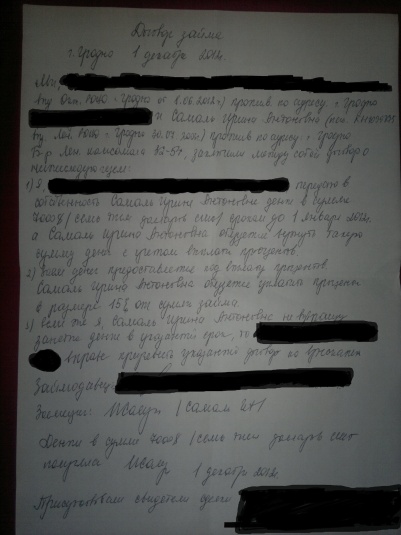 Договор займа
г. Гродно 1 декабря 2012г.
Мы,
выд. Окт. РОВД г. Гродно от 1.06.2012г) прожив. по адресу: г. Гродно
и Самаль Ирина Антоновна
выд. Лен. РОВД г. Гродно прожив. по адресу: г. Гродно
Б-р Лен. комсомола 42-57, заключили между собой договор о
нижеследующем:
1) Я, передаю в
собственность Самаль Ирине Антоновне деньги в сумме
7000$ /семь тысяч долларов сша/ сроком до 1 января
а Самаль Ирина Антоновна обязуется вернуть такую
сумму денег с учетом выплаты процентов.
2) Заем денег предоставляется под выплату процентов.
Самаль Ирина Антоновна обязуется уплатить проценты
в размере 15% от суммы займа.
3) Если же я, Самаль Ирина Антоновна не возвращу
занятые деньги в указанный срок, то
вправе предъявить указанный договор ко взысканию
Займодавец:
Заемщик: /Самаль И.А/
Деньги в сумме 7000$ /семь тысяч долларов сша/
получила 1 декабря 2012г.
Присутствовали свидетели